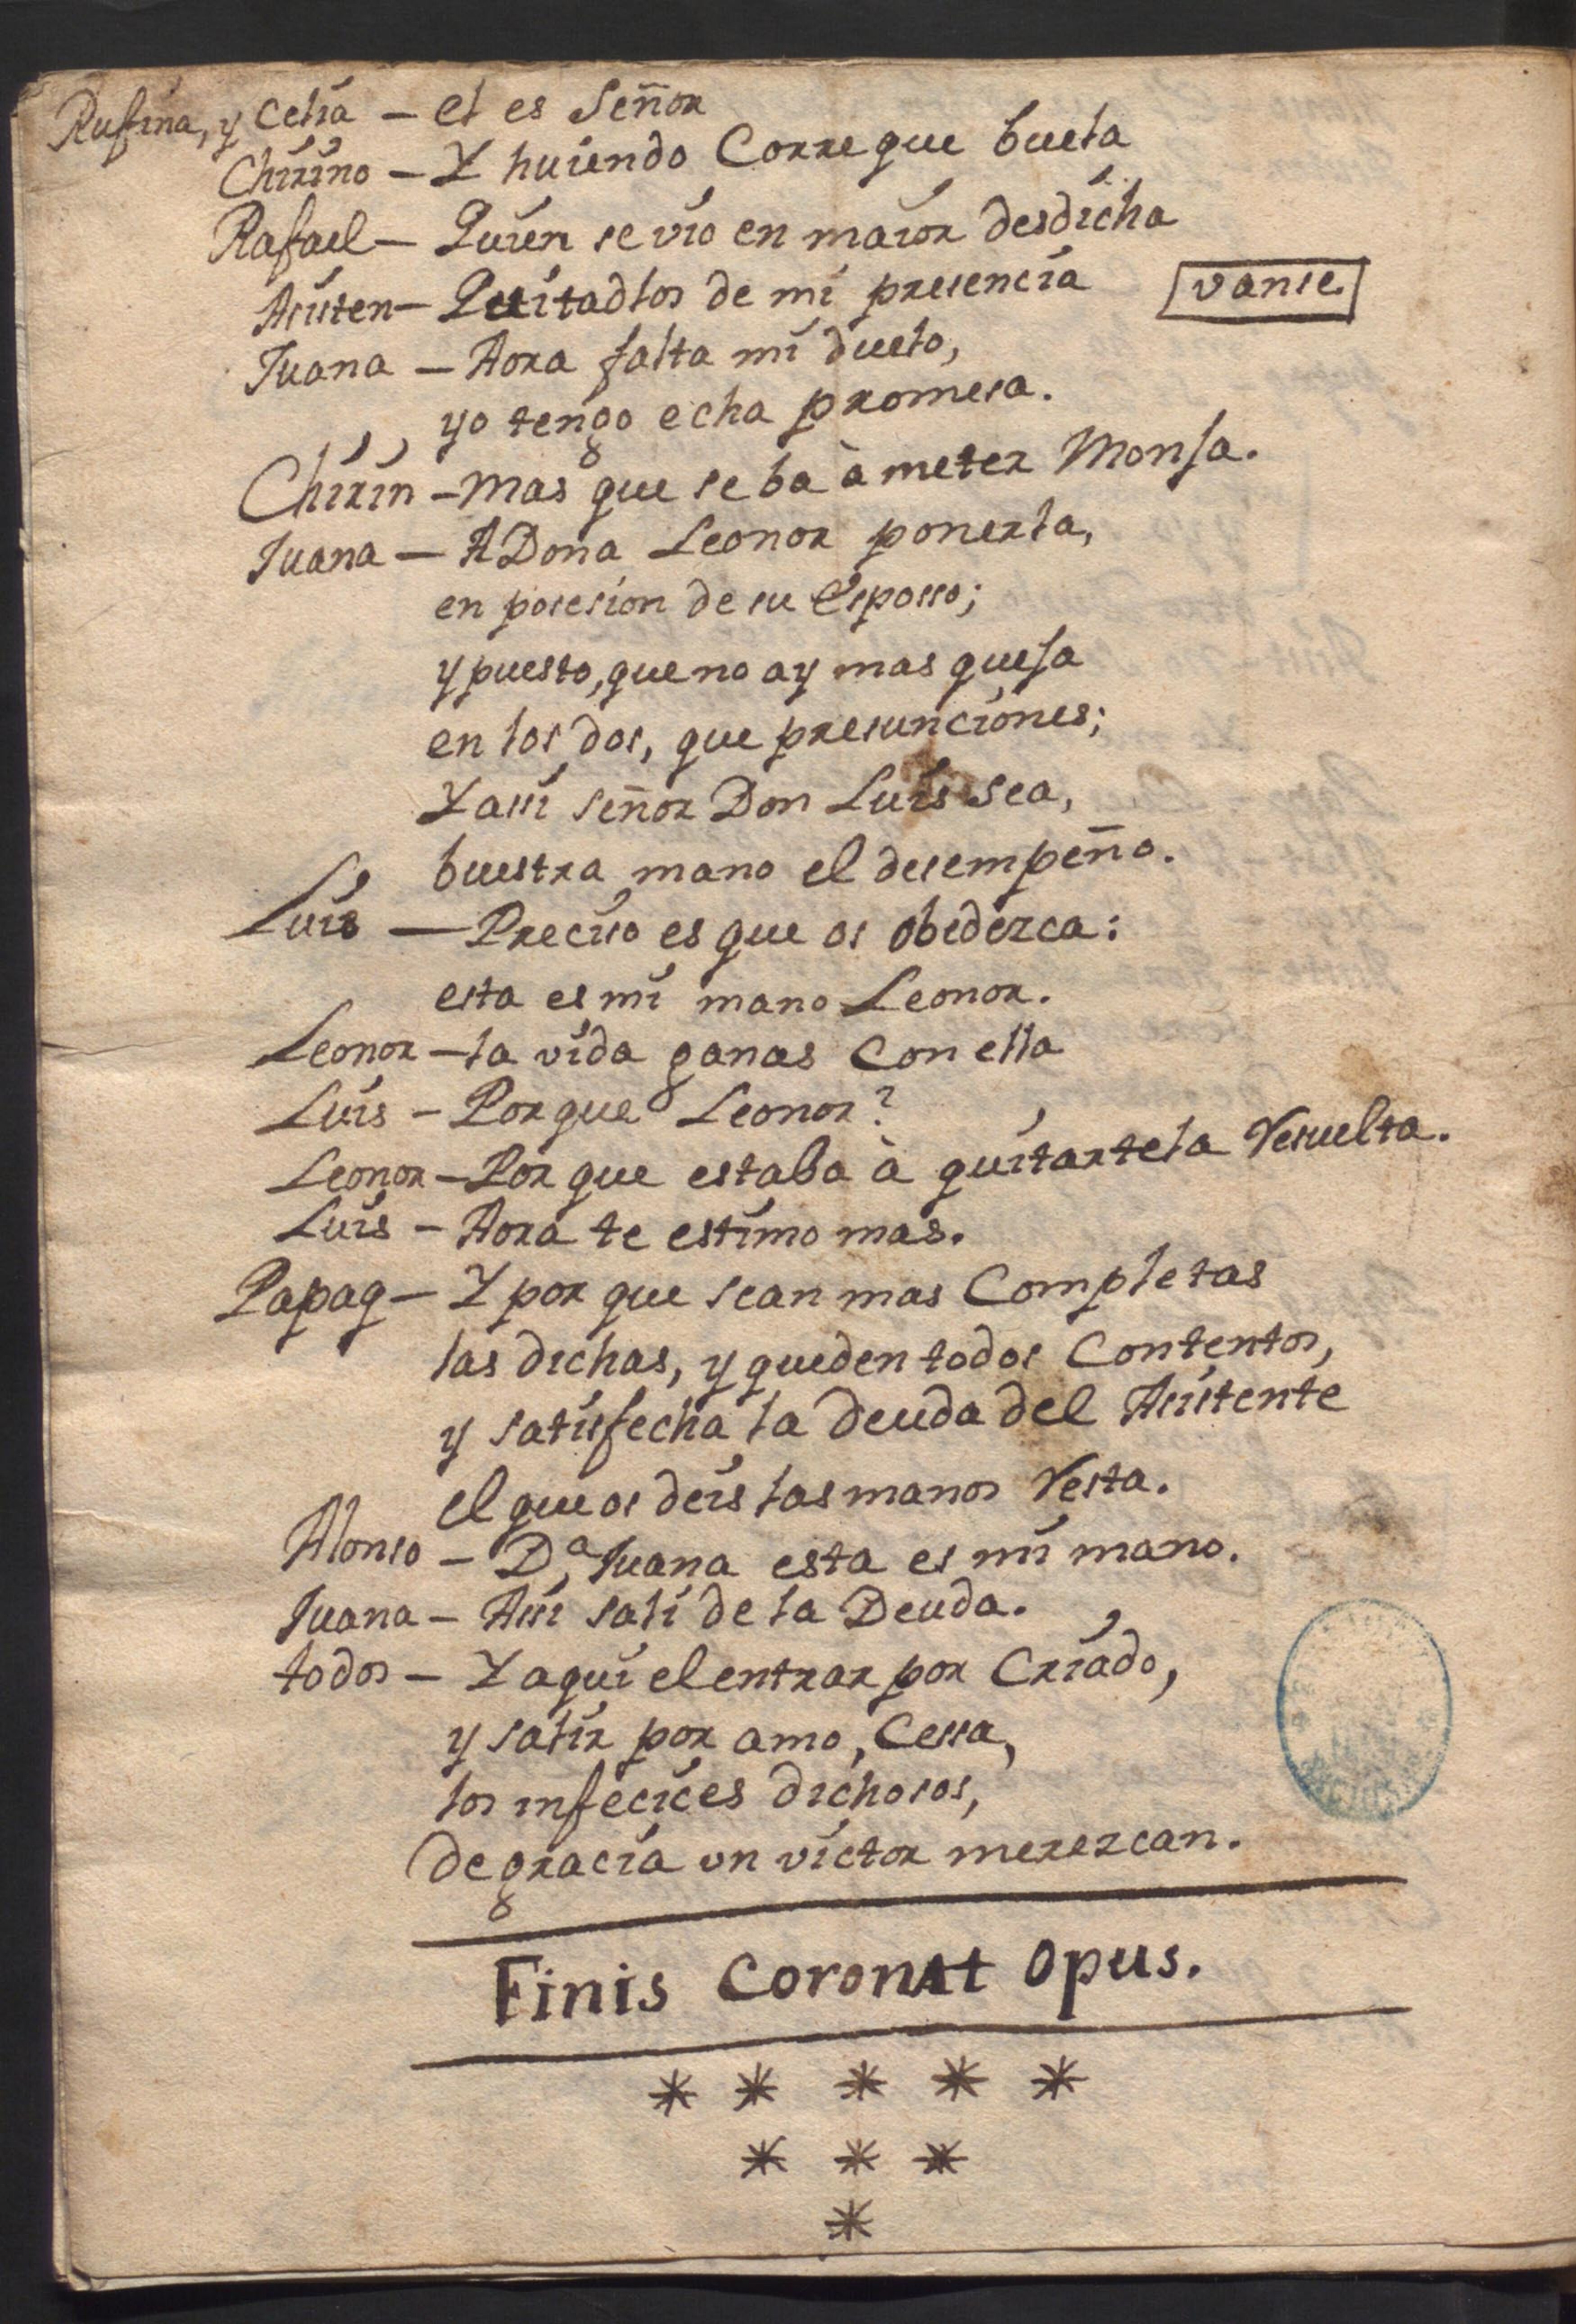 Rufina, y Celia – el es Señor
Chirino – Y huiendo Corre que buela
Rafael – Quien se vio en maior desdicha
Asisten – Quitadlos de mi presencia [vanse]
Juana – Aora falta mi duelo,
yo tengo echa promesa.
Chirin – mas que se ba à meter Monja.
Juana – A Dona Leonor ponerla,
en posesion de su Esposso;
y puesto, que no ay mas queja
en los dos, que presunciones;
Y assi señor Don Luis sea,
buestra mano el desempeño.
Luis – Preciso es que os obedezca:
esta es mi mano Leonor.
Leonor – la vida ganas Con ella
Luis – Porque Leonor?
Leonor – Por que estaba à quitartela Resuelta.
Luis – Aora te estimo mas.
Papag – Y por que sean mas Completas
las dichas, y queden todos Contentos,
y satisfecha la deuda del Asistente
el que os deis las manos Resta.
Alonso – Dª Juana esta es mi mano.
Juana – Assi sali de la Deuda.
todos – Y aqui el entrar por Criado,
y salir por amo, Cessa,
los infecices dichosos,
de gracia un victor merezcan.
Finis Coronat Opus.
* * * * *
* * *
*